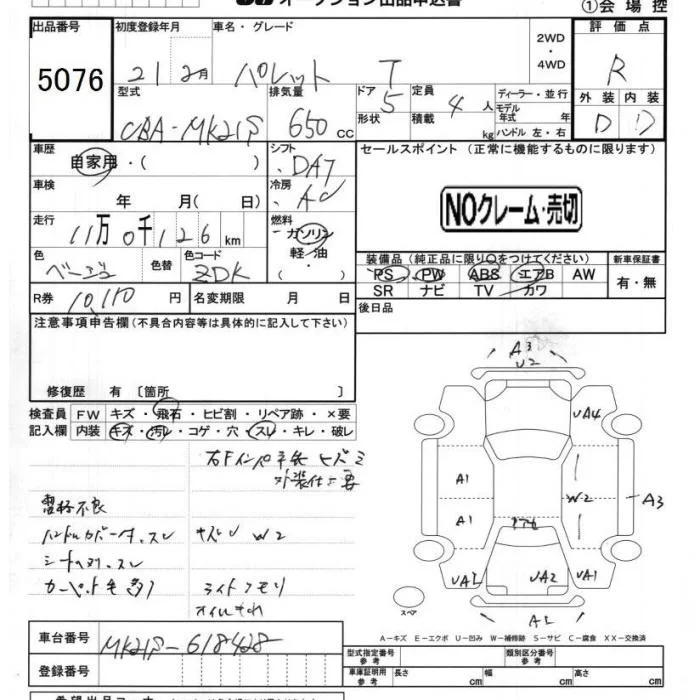 オークション出品申込書
①会場控
出品番号
5076
初度登録年月
21 2月
車名・グレード
パレット T
2WD
・
4WD
評価点
R
外装 内装
D D
型式
CBA-MK21S
排気量
650 CC
ドア
5
形状
定員
4 人
積載
kg
ディーラー・並行
モデル年式 年
ハンドル 左・右
車歴
自家用・( )
シフト
DAT
車検
年 月( 日)
冷房
AC
走行
11万0千126 km
燃料
ガソリン
軽油
・( )
色
ベージュ
色替
色コード
ZDK
R券 10,110 円
名変期限 月 日
セールスポイント(正常に機能するものに限ります)
NOクレーム・売切
装備品(純正品に限り○をつけてください)
PS PW ABS エアB AW
SR ナビ TV カワ
新車保証書
有・無
後日品
注意事項申告欄(不具合内容等は具体的に記入して下さい)
修復歴 有 [箇所 ]
検査員
記入欄
FW キズ・飛石・ヒビ割・リペア跡・×要
内装 キズ・汚レ・コゲ・穴・スレ・キレ・破レ
外装仕上要
電格不良
ハンドルカバー大、スレ
W2
カーペット毛多し
ライトクモリ
A3
U2
UA4
A1
W2
A3
A1
UA2
UA1
スペア
A-キズ E-エクボ U-凹み W-補修跡 S-サビ C-腐食 XX-交換済
車台番号
MK21S-618428
登録番号
型式指定番号
参考
類別区分番号
参考
車庫証明用
参考
長さ cm
幅 cm
高さ cm
希望出品コーナー